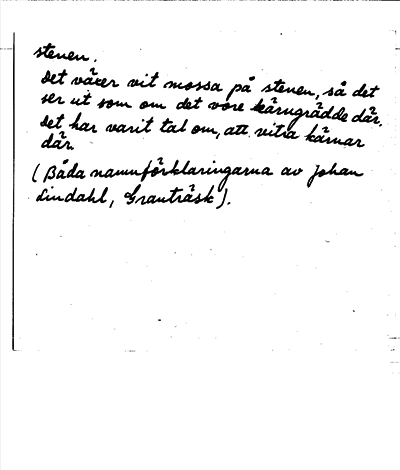 stenen.
Det växer vit mossa på stenen, så det
ser ut som om det vore kärngrädde där.
Det har varit tal om, att vitra kärnar
där.
(Båda namnförklaringarna av Johan
Lindahl, Granträsk).